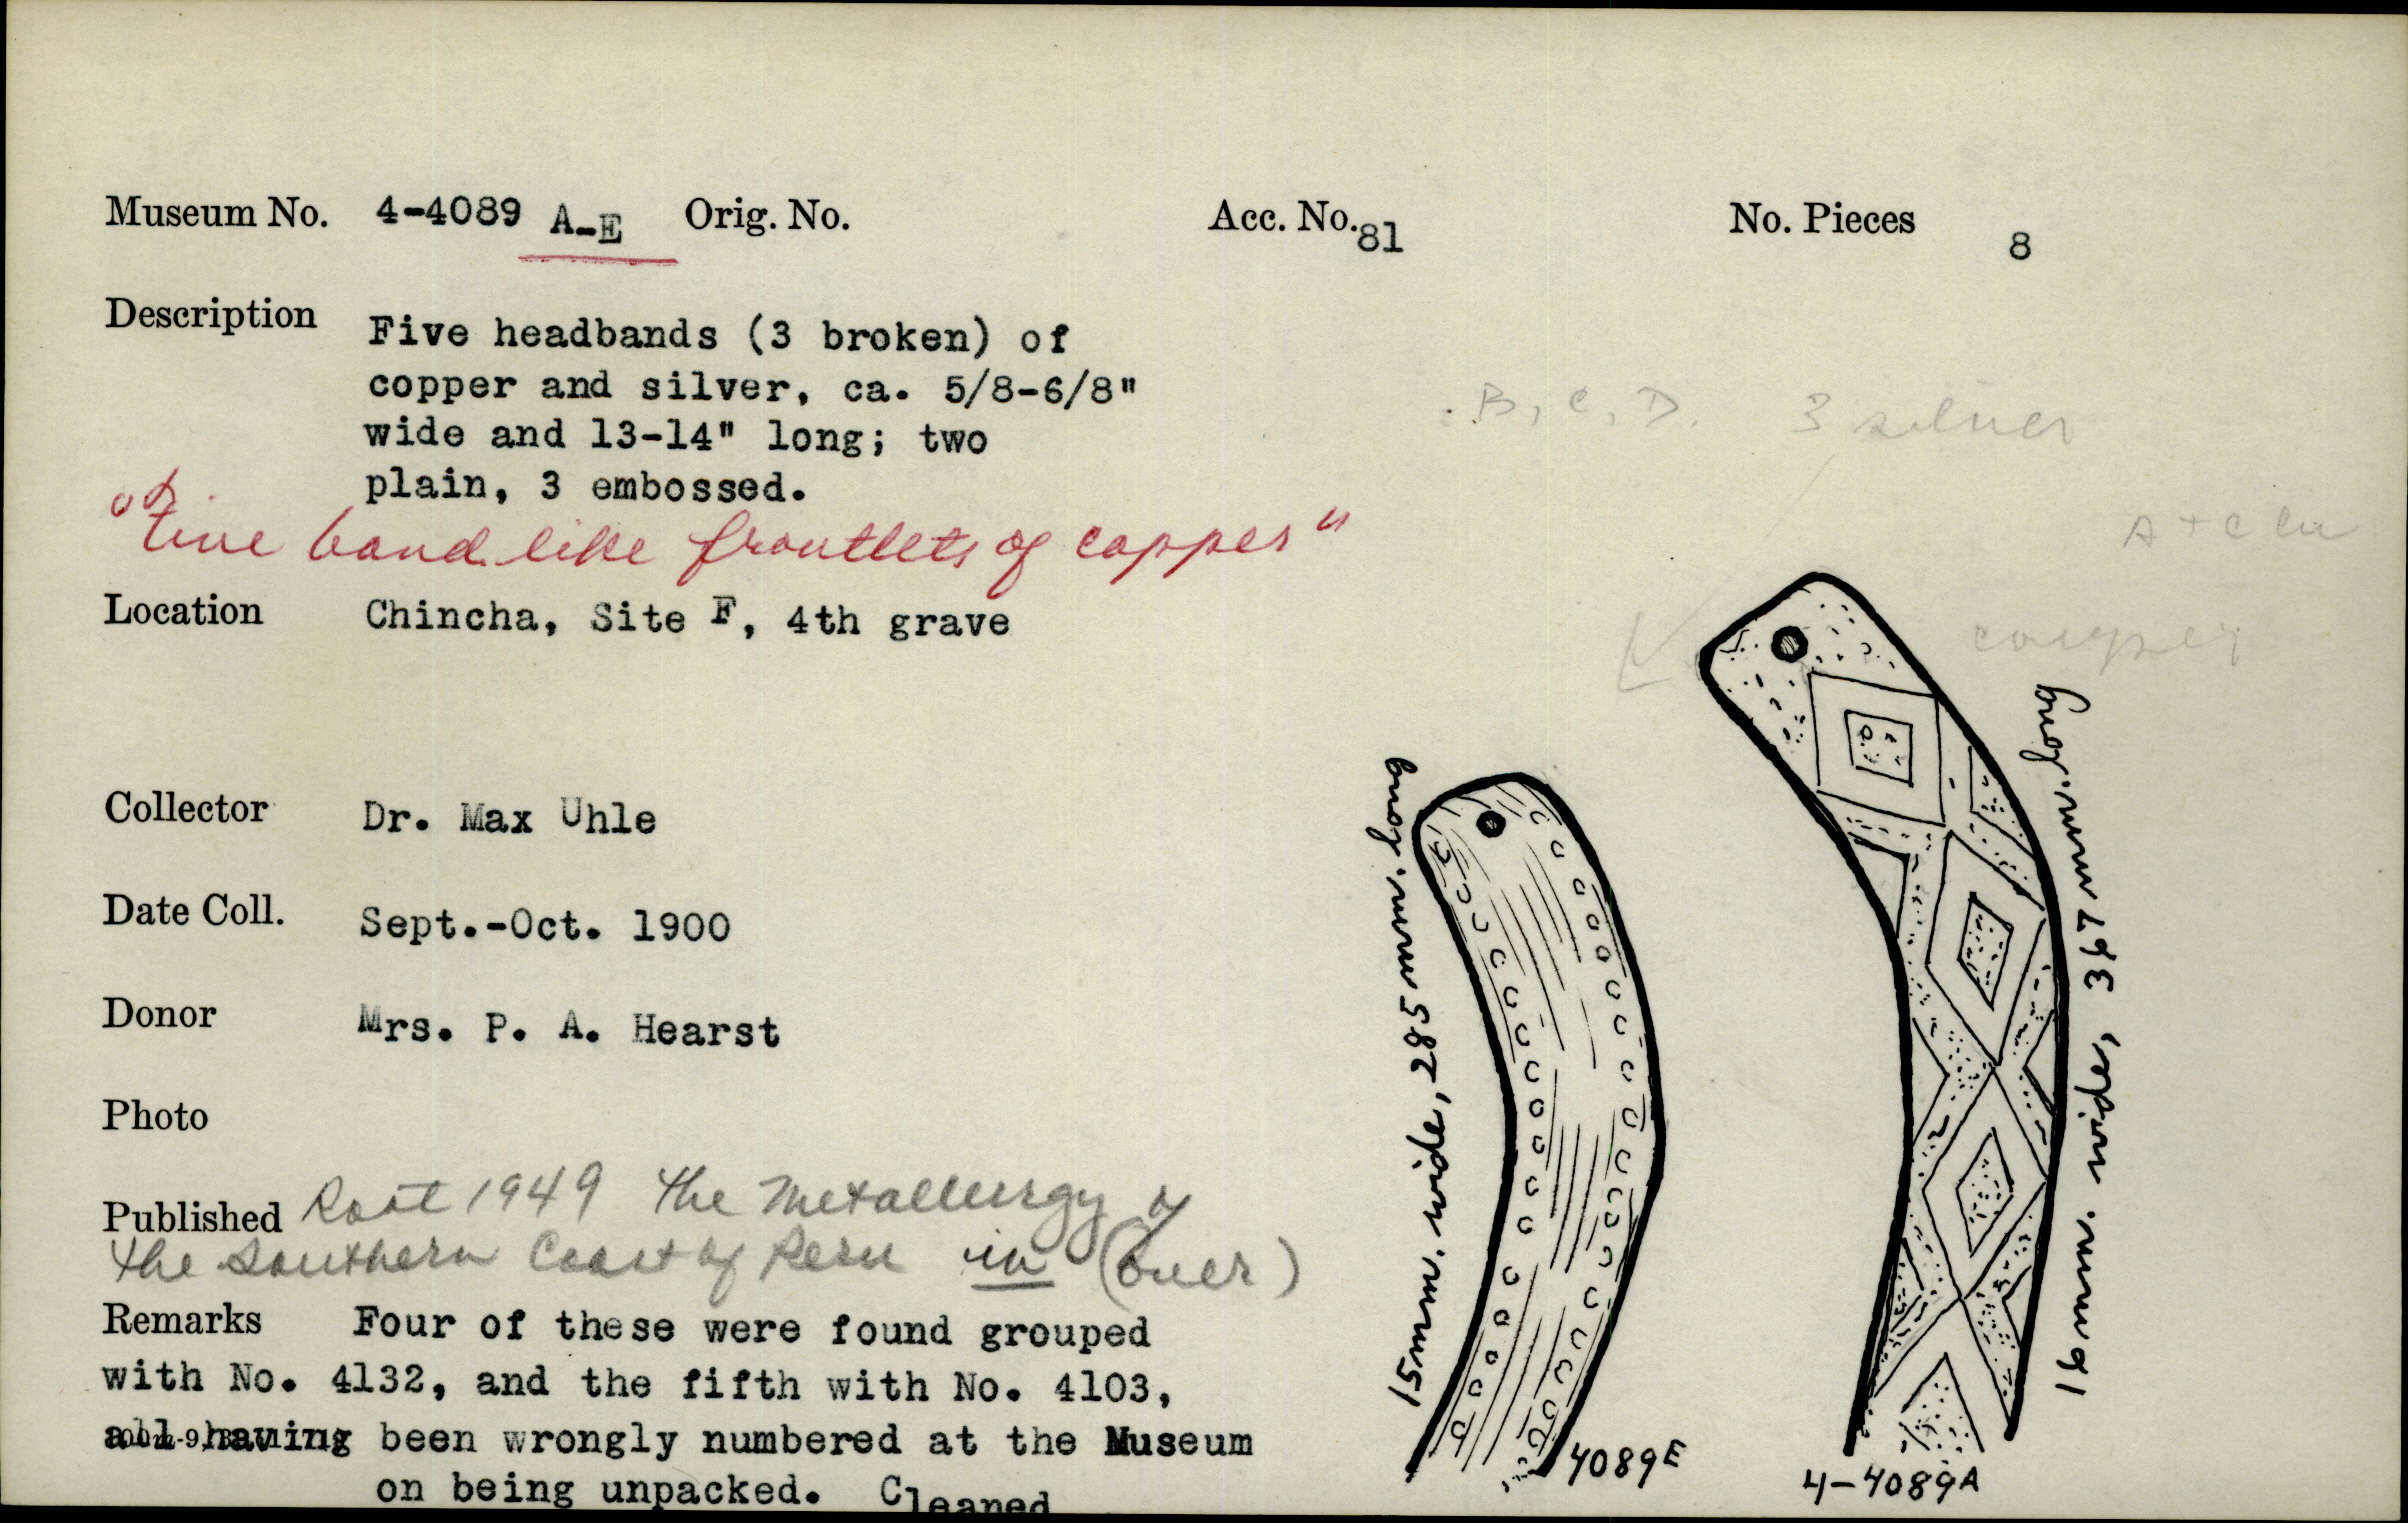 Museum No. 4-4089 A-E Orig. No. Acc. No. 81 No. Pieces 8
Description Five headbands (3 broken) of
copper and silver, ca. 5/8-6/8"
wide and 13-14" long; two
plain, 3 embossed.
B, C, D. 3 silver
"five band like frontlets of copper"
A + E
copper
Location Chincha, Site F, 4th grave
Collector Dr. Max Uhle
Date Coll. Sept.-Oct. 1900
Donor Mrs. P. A. Hearst
Photo
Published Root 1949 The Metallurgy of
the Southern Coast of Peru in (over)
Remarks Four of these were found grouped
with No. 4132, and the fifth with No. 4103,
all having been wrongly numbered at the Museum
on being unpacked. Cleaned
15 mm. wide, 285 mm. long
4089E
16 mm. wide, 367 mm. long
4-4089A